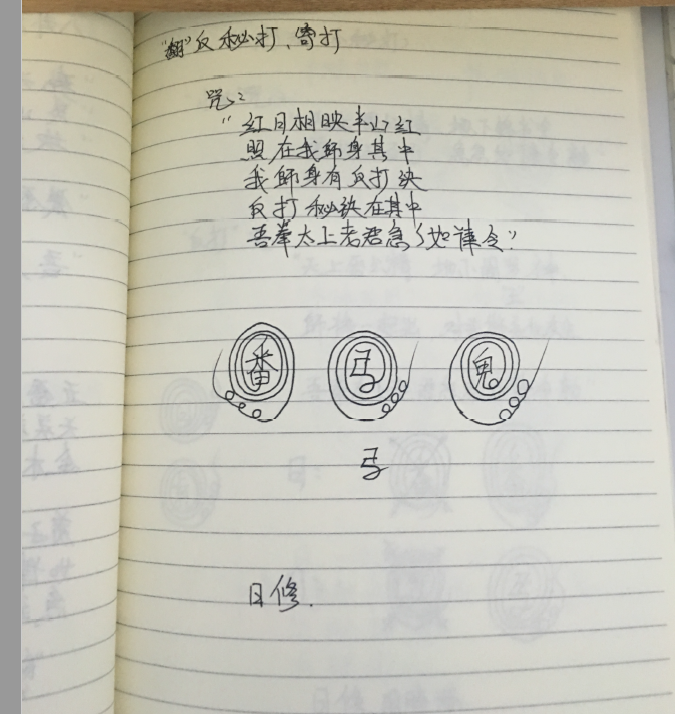 "翻"反秘打、寄打
咒:
"红日相映半山红
照在我師身其中
我師身有反打決
反打秘訣在其中
吾奉太上老君急々如律令"
番 弓 鬼
弓
日修.